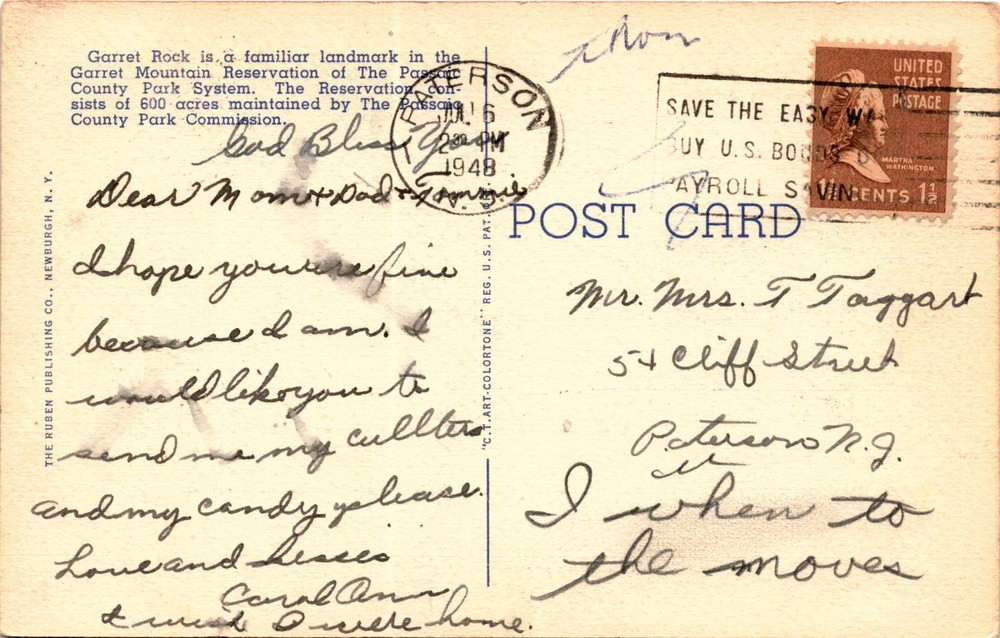 Garret Rock is a familiar landmark in the
Garret Mountain Reservation of The Passaic
County Park System. The Reservation con-
sists of 600 acres maintained by The Passaic
County Park Commission.
God Bless You
Dear Mom + Dad + Tommie
I hope you are fine
because I am. I
would like you to
send me my cullters
and my candy please.
Love and kisses
Carol Ann
I wish I were home.
THE RUBEN PUBLISHING CO., NEWBURGH, N. Y.
"C.T. ART-COLORTONE" REG. U.S. PAT.
PATERSON
N. J.
JUL 6
2 PM
1948
SAVE THE EASY WAY
BUY U.S. BONDS
PAYROLL SAVIN
UNITED
STATES
POSTAGE
MARTHA
WASHINGTON
1½ CENTS 1½
POST CARD
Mr. Mrs. T Taggart
54 Cliff Street
Paterson N.J.
I when to
the moves